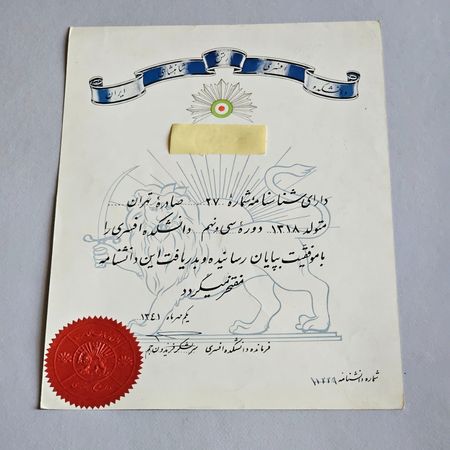 دانشکده افسری ارتش شاهنشاهی ایران
دارای شناسنامهٔ شمارهٔ ۲۷ صادرهٔ تهران
متولد ۱۳۱۸ دورهٔ سی و نهم دانشکده افسری را
با موفقیت بپایان رسانیده و بدریافت این دانشنامه
مفتخر میگردد
یکم مهر ماه ۱۳۴۱
فرمانده دانشکده افسری سرلشکر فریدون جم
شماره دانشنامه